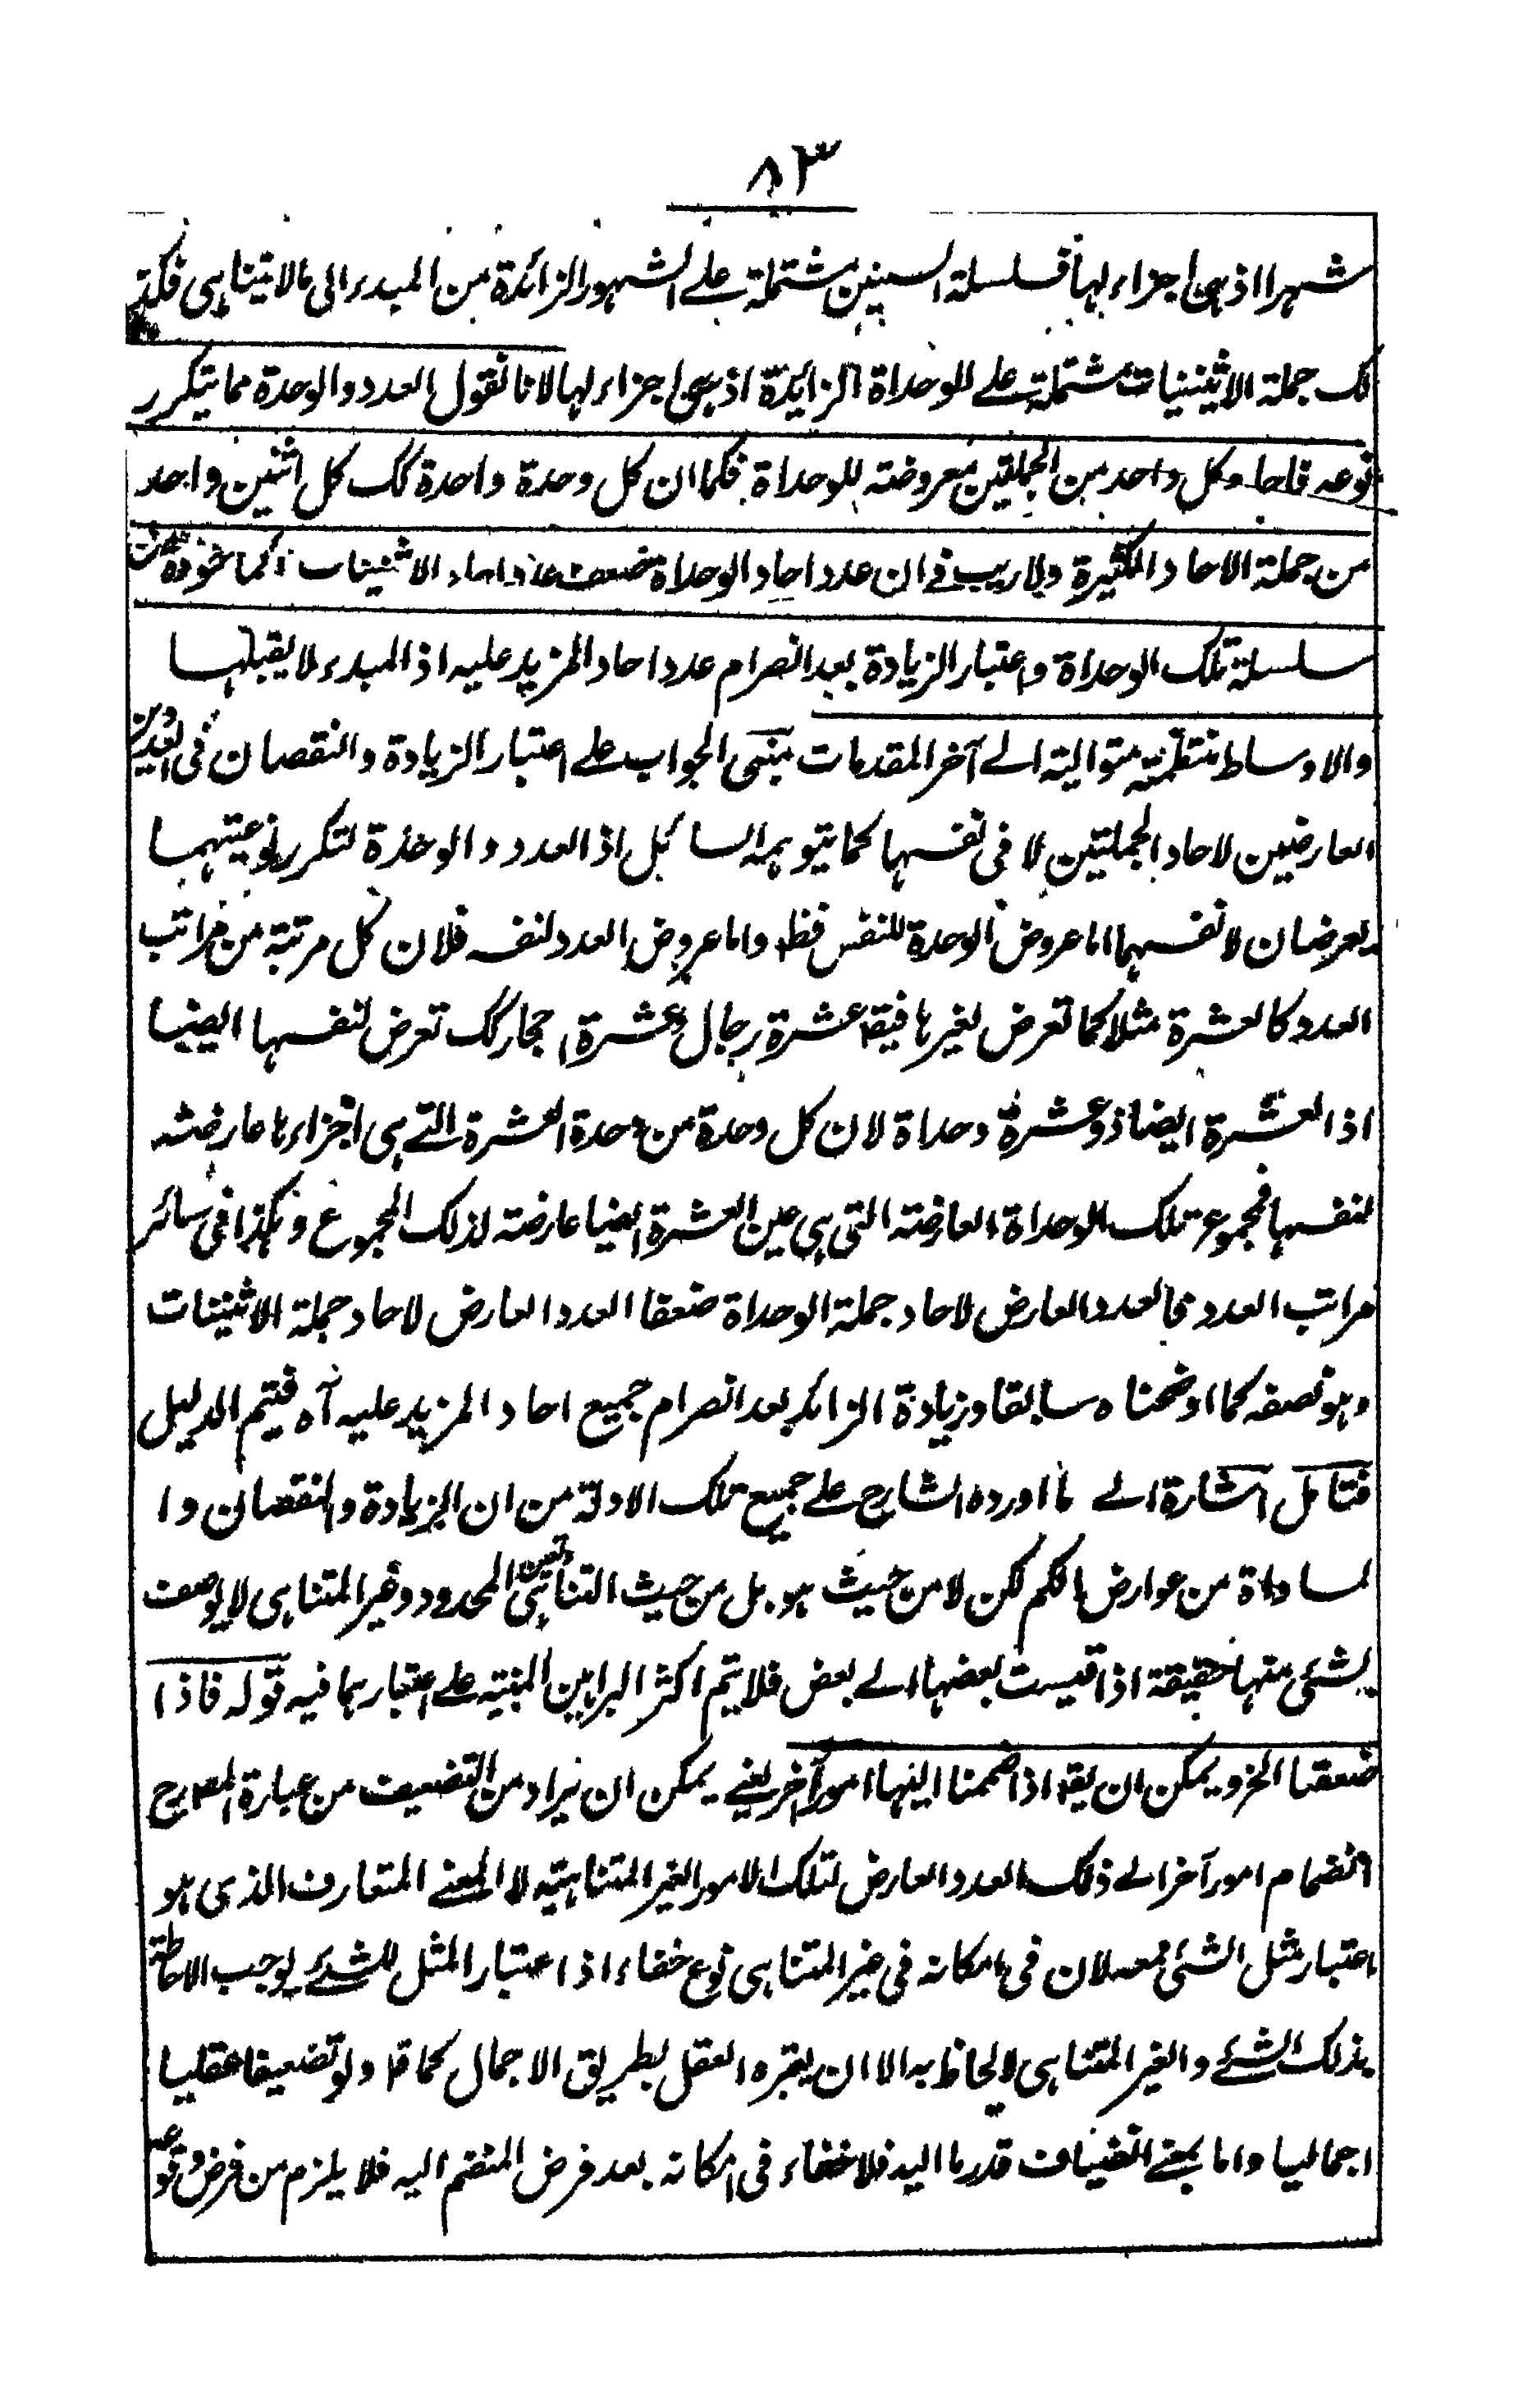 ٨٣
شهرا اذ هى اجزاء لها فسلسلة السنين مشتملة على الشهور الزائدة من المبدء الى مالا يتناهى فكذ
لك جملة الاثنينيات مشتملة على الوحداة الزائدة اذ هى اجزاء لها لانا نقول العدد والوحدة مما يتكرر
نوعه فاحا وكل واحد من الجملتين معروضة للوحداة فكما ان كل وحدة واحدة كك كل اثنين واحد
من جملة الاحاد الكثيرة ولا ريب فى ان عدد احاد الوحداة ضعف عدد احاد الاثنينات المأخوذة من
سلسلة تلك الوحداة واعتبار الزيادة بعد انصرام عدد احاد المزيد عليه اذ المبدء لا يقبلها
والاوساط منتظمة متوالية الى آخر المقدمات مبنى الجواب على اعتبار الزيادة والنقصان فى العددين
العارضين لاحاد الجملتين لا فى نفسها كما يتوهمه السائل اذ العدد والوحدة لتكرر نوعيتهما
يعرضان لانفسهما اما عروض الوحدة للنفس فظ واما عروض العدد لنفسه فلان كل مرتبة من مراتب
العدد كالعشرة مثلا كما تعرض لغيرها فيقا عشرة رجال وعشرة احجار كك تعرض لنفسها ايضا
اذ العشرة ايضا ذو عشرة وحداة لان كل وحدة من وحدة العشرة التى هى اجزاءها عارضة
لنفسها فمجموع تلك الوحداة العارضة التى هى عين العشرة ايضا عارضة لذلك المجموع وهكذا فى سائر
مراتب العدد فالعدد العارض لاحاد جملة الوحداة ضعفا العدد العارض لاحاد جملة الاثنينات
وهو نصفه كما اوضحناه سابقا وزيادة الزائد بعد انصرام جميع احاد المزيد عليه آه فيتم الدليل
فتامل اشارة الى ما اورده الشارح على جميع تلك الادلة من ان الزيادة والنقصان وا
لمساواة من عوارض الكم لكن لا من حيث هو بل من حيث التناهى المحدود وغير المتناهى لا يوصف
بشئى منها حقيقة اذا قيست بعضها الى بعض فلا يتم اكثر البراهين المبنية على اعتبارهما فيه قوله فاذا
ضعفنا الخ ويمكن ان يقا اذا ضممنا اليها امورا اخر يعنى يمكن ان يراد من التضعيف من عبارة المصرح
انضمام امور آخر الى ذلك العدد العارض لتلك الامور الغير المتناهية لا المعنى المتعارف الذى هو
اعتبار مثل الشئى معه لان فى امكانه فى غير المتناهى نوع خفاء اذ اعتبار المثل للشئ يوجب الاحاطة
بذلك الشئ والغير المتناهى لا يحاط به الا ان يعتبره العقل بطريق الاجمال كما قا ولو تضعيفا عقليا
اجماليا واما بمعنى انضياف قدر ما اليه فلا خفاء فى امكانه بعد فرض المنضم اليه فلا يلزم من فرض وقوعه